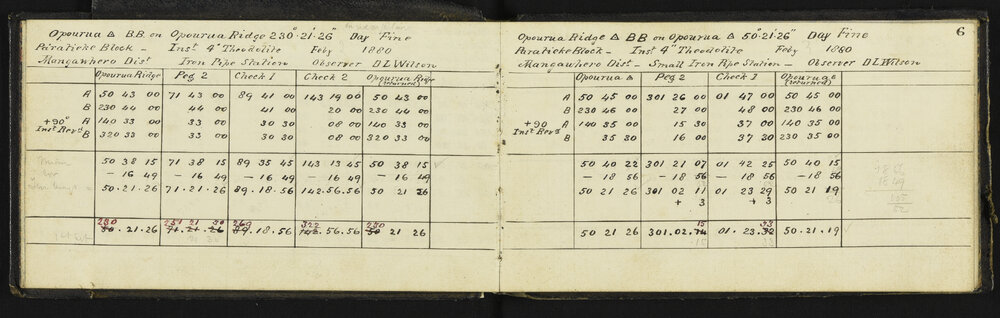 Opourua Δ BB on Opourua Ridge 230°·21'·26" Day Fine
Paratieke Block – Inst 4" Theodolite Feby 1880
Mangawhero Dist Iron Pipe Station Observer D L Wilson
Opourua Ridge Peg 2 Check 1 Check 2 Opourua Ridge (returned)
A 50 43 00 71 43 00 89 41 00 143 19 00 50 43 00
B 230 44 00 44 00 41 00 20 00 230 44 00
+90° A 140 33 00 33 00 30 30 08 00 140 33 00
Inst Rev'd B 320 33 00 33 00 30 30 08 00 320 33 00
50 38 15 71 38 15 89 35 45 143 13 45 50 38 15 √
– 16 49 – 16 49 – 16 49 – 16 49 – 16 49
50·21·26 71·21·26 89·18·56 142·56·56 50 21 26
230 251 21 260 322 230
50·21·26 71·21·26 89·18·56 142·56·56 50 21 26
6
Opourua Ridge Δ BB on Opourua Δ 50°·21'·26" Day Fine
Paratieke Block – Inst 4" Theodolite Feby 1880
Mangawhero Dist – Small Iron Pipe Station – Observer D L Wilson
Opourua Δ Peg 2 Check 1 Opourua Δ (returned)
A 50 45 00 301 26 00 01 47 00 50 45 00
B 230 46 00 27 00 48 00 230 46 00
+90 A 140 35 00 15 30 37 00 140 35 00
Inst Rev'd B 35 30 16 00 37 30 230 35 00
50 40 22 301 21 07 01 42 25 50 40 15
– 18 56 – 18 56 – 18 56 – 18 56
50 21 26 301 02 11 01 23 29 50 21 19
+ 3 + 3
15
50 21 26 301·02·14 01·23·32 50·21·19 √